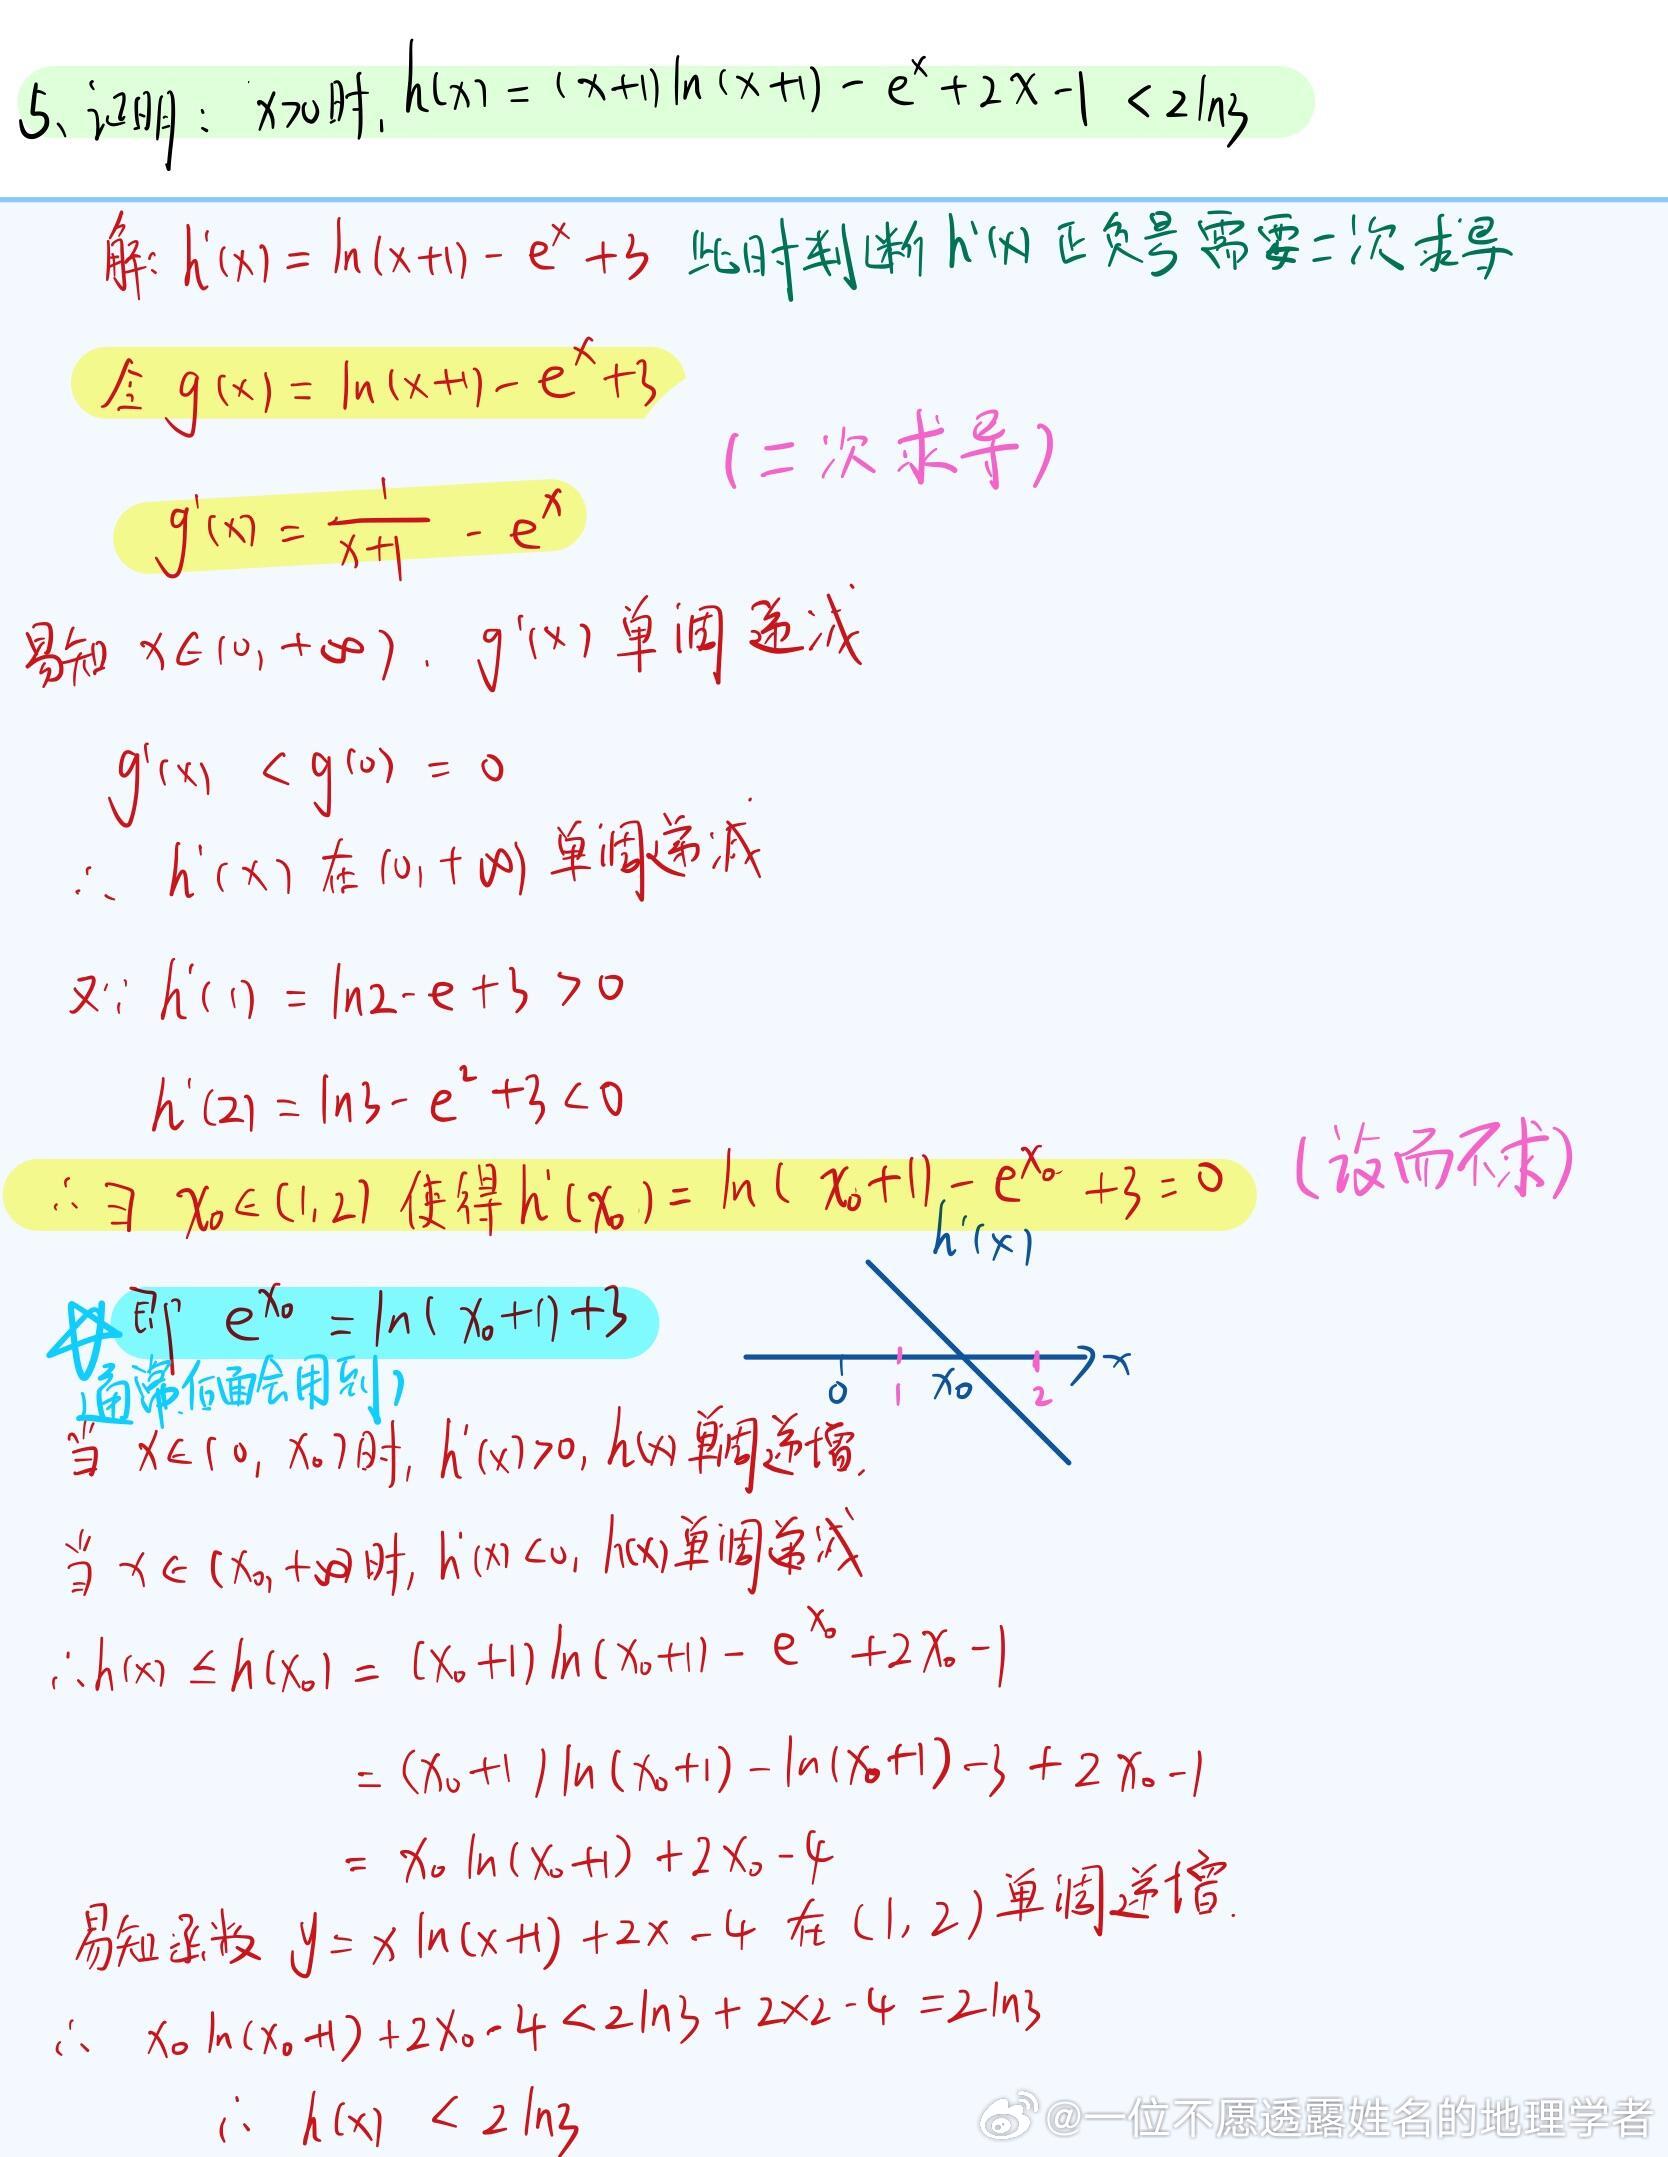 5、证明：x>0时，h(x) = (x+1)ln(x+1) - e^x + 2x - 1 < 2ln3
解：h'(x) = ln(x+1) - e^x + 3 此时判断h'(x)正负号需要二次求导
令 g(x) = ln(x+1) - e^x + 3
(二次求导)
g'(x) = 1/(x+1) - e^x
易知 x∈(0,+∞)，g'(x) 单调递减
g'(x) < g(0) = 0
∴ h'(x) 在(0,+∞) 单调递减
又∵ h'(1) = ln2 - e + 3 > 0
h'(2) = ln3 - e² + 3 < 0
∴ ∃ x₀∈(1,2) 使得 h'(x₀) = ln(x₀+1) - e^x₀ + 3 = 0 (设而不求)
h'(x)
即 e^x₀ = ln(x₀+1) + 3
0 1 x₀ 2 x
通常后面会用到)
当 x∈(0, x₀)时, h'(x)>0, h(x)单调递增.
当 x∈(x₀,+∞)时, h'(x)<0, h(x)单调递减
∴h(x) ≤ h(x₀) = (x₀+1)ln(x₀+1) - e^x₀ + 2x₀ - 1
= (x₀+1)ln(x₀+1) - ln(x₀+1) - 3 + 2x₀ - 1
= x₀ ln(x₀+1) + 2x₀ - 4
易知函数 y = x ln(x+1) + 2x - 4 在 (1,2) 单调递增.
∴ x₀ ln(x₀+1) + 2x₀ - 4 < 2ln3 + 2×2 - 4 = 2ln3
∴ h(x) < 2ln3
@一位不愿透露姓名的地理学者